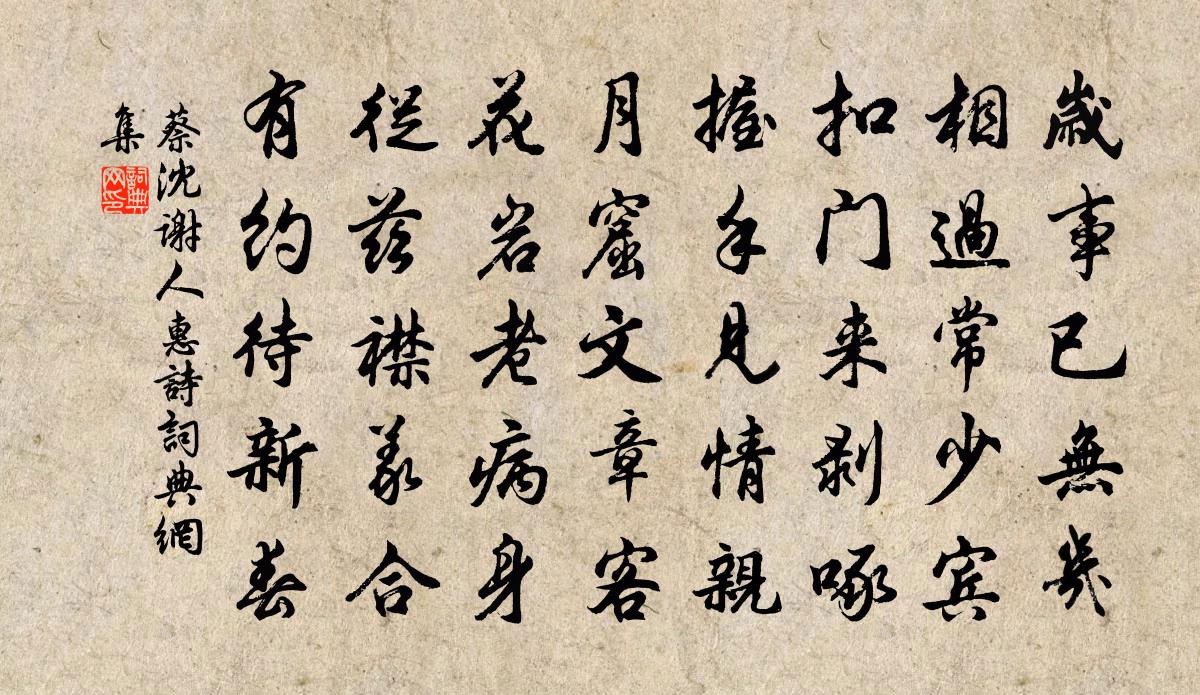 歲事已無幾
相過常少宾
扣门来剥啄
握手見情親
月窟文章客
花岩老病身
從茲襟義合
有約待新春
蔡沈谢人惠詩詞典網
集
詞典
网印